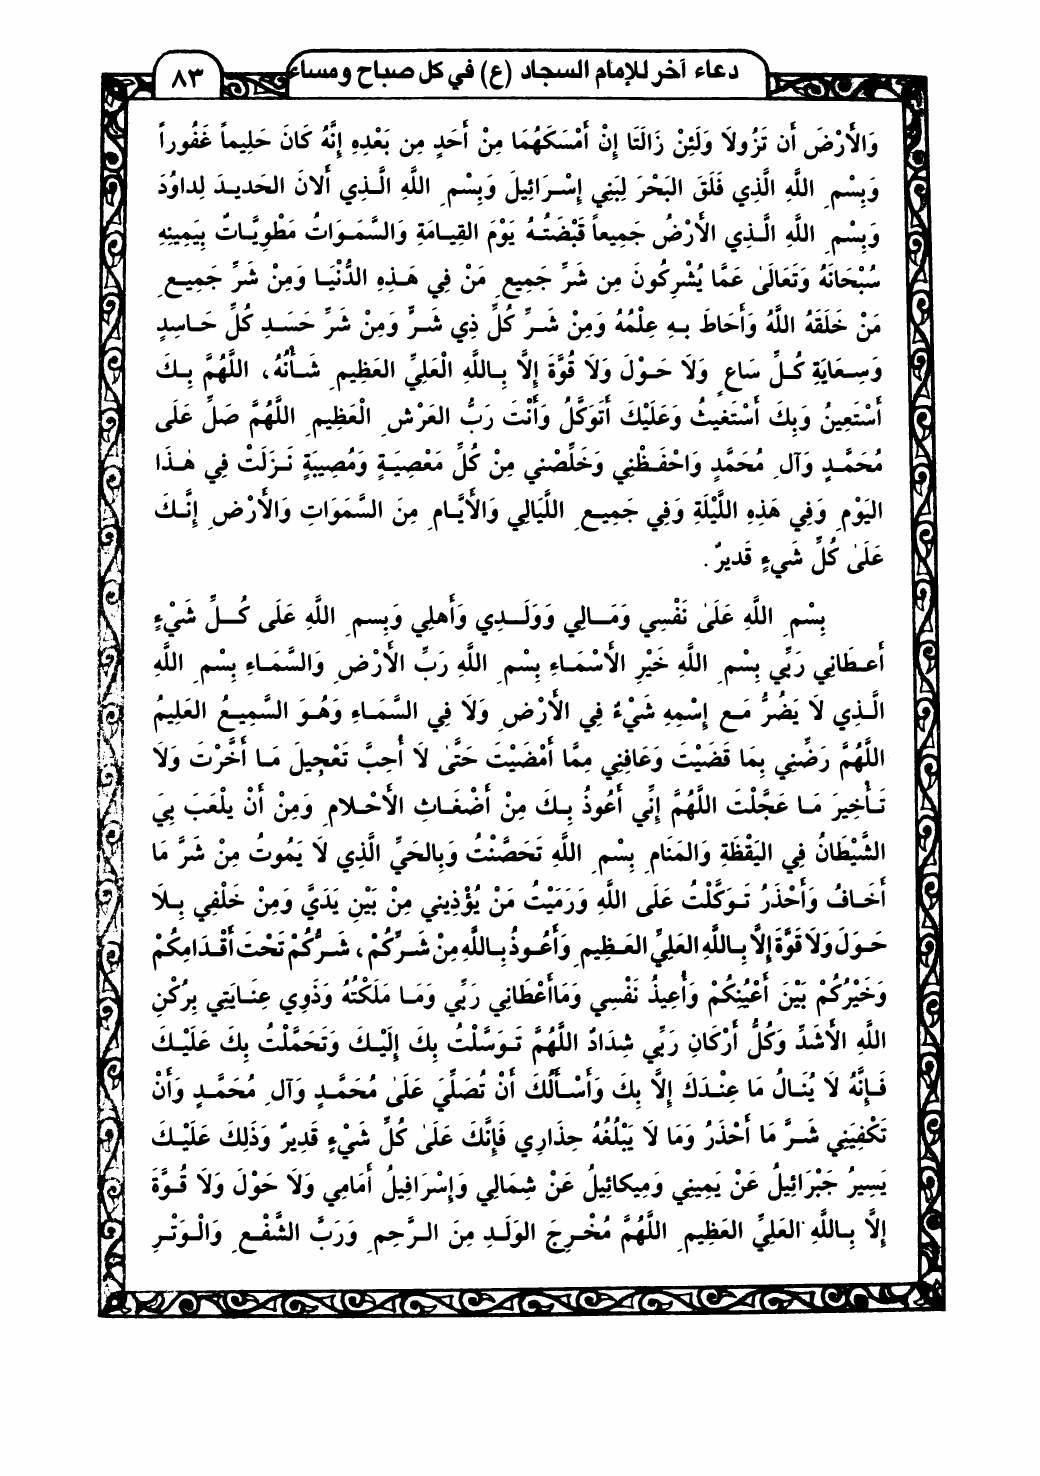 دعاء آخر للإمام السجاد (ع) في كل صباح ومساء
٨٣
وَالأَرْضَ أَن تَزُولاَ وَلَئِنْ زَالَتَا إِنْ أَمْسَكَهُمَا مِنْ أَحَدٍ مِن بَعْدِهِ إِنَّهُ كَانَ حَلِيماً غَفُوراً
وَبِسْمِ اللَّهِ الَّذِي فَلَقَ البَحْرَ لِبَنِي إِسْرَائِيلَ وَبِسْمِ اللَّهِ الَّذِي أَلانَ الحَدِيدَ لِداوُدَ
وَبِسْمِ اللَّهِ الَّذِي الأَرْضُ جَمِيعاً قَبْضَتُهُ يَوْمَ القِيَامَةِ وَالسَّمَوَاتُ مَطْوِيَّاتٌ بِيَمِينِهِ
سُبْحَانَهُ وَتَعَالَىٰ عَمَّا يُشْرِكُونَ مِن شَرِّ جَمِيعِ مَنْ فِي هَذِهِ الدُّنْيَا وَمِنْ شَرِّ جَمِيعِ
مَنْ خَلَقَهُ اللَّهُ وَأَحَاطَ بِهِ عِلْمُهُ وَمِنْ شَرِّ كُلِّ ذِي شَرٍّ وَمِنْ شَرِّ حَسَدِ كُلِّ حَاسِدٍ
وَسِعَايَةِ كُلِّ سَاعٍ وَلاَ حَوْلَ وَلاَ قُوَّةَ إِلَّا بِاللَّهِ الْعَلِيِّ العَظِيمِ شَأْنُهُ، اللَّهُمَّ بِكَ
أَسْتَعِينُ وَبِكَ أَسْتَغيثُ وَعَلَيْكَ أَتَوَكَّلُ وَأَنْتَ رَبُّ العَرْشِ الْعَظِيمِ اللَّهُمَّ صَلِّ عَلَى
مُحَمَّدٍ وَآلِ مُحَمَّدٍ وَاحْفَظْنِي وَخَلِّصْنِي مِنْ كُلِّ مَعْصِيَةٍ وَمُصِيبَةٍ نَزَلَتْ فِي هٰذَا
اليَوْمِ وَفِي هَذِهِ اللَّيْلَةِ وَفِي جَمِيعِ اللَّيَالِي وَالأَيَّامِ مِنَ السَّمَوَاتِ وَالأَرْضِ إِنَّكَ
عَلَىٰ كُلِّ شَيءٍ قَدِيرٌ.
بِسْمِ اللَّهِ عَلَىٰ نَفْسِي وَمَالِي وَوَلَدِي وَأَهلِي وَبِسمِ اللَّهِ عَلَى كُلِّ شَيْءٍ
أَعطَانِي رَبِّي بِسْمِ اللَّهِ خَيْرِ الأَسْمَاءِ بِسْمِ اللَّهِ رَبِّ الأَرْضِ وَالسَّمَاءِ بِسْمِ اللَّهِ
الَّذِي لاَ يَضُرُّ مَع إِسْمِهِ شَيْءٌ فِي الأَرْضِ وَلاَ فِي السَّمَاءِ وَهُوَ السَّمِيعُ العَلِيمُ
اللَّهُمَّ رَضِّنِي بِمَا قَضَيْتَ وَعَافِنِي مِمَّا أَمْضَيْتَ حَتَّىٰ لاَ أُحِبَّ تَعْجِيلَ مَا أَخَّرْتَ وَلاَ
تَأْخِيرَ مَا عَجَّلْتَ اللَّهُمَّ إِنِّي أَعُوذُ بِكَ مِنْ أَضْغَاثِ الأَحْلامِ وَمِنْ أَنْ يلْعَبَ بِيَ
الشَّيْطَانُ فِي اليَقْظَةِ وَالمَنَامِ بِسْمِ اللَّهِ تَحَصَّنْتُ وَبِالحَيِّ الَّذِي لاَ يَمُوتُ مِنْ شَرَّ مَا
أَخَافُ وَأَحْذَرُ تَوَكَّلْتُ عَلَى اللَّهِ وَرَمَيْتُ مَنْ يُؤْذِيني مِنْ بَيْنِ يَدَيَّ وَمِنْ خَلْفِي بِلاَ
حَوْلَ وَلاَ قُوَّةَ إِلاَّ بِاللَّهِ العَلِيِّ العَظِيمِ وَأَعُوذُ بِاللَّهِ مِنْ شَرِّكُمْ، شَرُّكُمْ تَحْتَ أَقْدَامِكُمْ
وَخَيْرُكُمْ بَيْنَ أَعْيُنِكُمْ وَأُعِيذُ نَفْسِي وَمَا أَعْطَانِي رَبِّي وَمَا مَلَكْتُهُ وَذَوِي عِنَايَتِي بِرُكْنِ
اللَّهِ الأَشَدِّ وَكُلُّ أَرْكَانِ رَبِّي شِدَادٌ اللَّهُمَّ تَوَسَّلْتُ بِكَ إِلَيْكَ وَتَحَمَّلْتُ بِكَ عَلَيْكَ
فَإِنَّهُ لاَ يُنَالُ مَا عِنْدَكَ إِلَّا بِكَ وَأَسْأَلُكَ أَنْ تُصَلِّيَ عَلَىٰ مُحَمَّدٍ وَآلِ مُحَمَّدٍ وَأَنْ
تَكْفِيَنِي شَرَّ مَا أَحْذَرُ وَمَا لاَ يَبْلُغُهُ حِذَارِي فَإِنَّكَ عَلَىٰ كُلِّ شَيْءٍ قَدِيرٌ وَذَلِكَ عَلَيْكَ
يَسِيرٌ جَبْرَائِيلُ عَنْ يَمِينِي وَمِيكائِيلُ عَنْ شِمَالِي وَإِسْرَافِيلُ أَمَامِي وَلاَ حَوْلَ وَلاَ قُوَّةَ
إِلاَّ بِاللَّهِ العَلِيِّ العَظِيمِ اللَّهُمَّ مُخْرِجَ الوَلَدِ مِنَ الرَّحِمِ وَرَبَّ الشَّفْعِ وَالْوَتْرِ